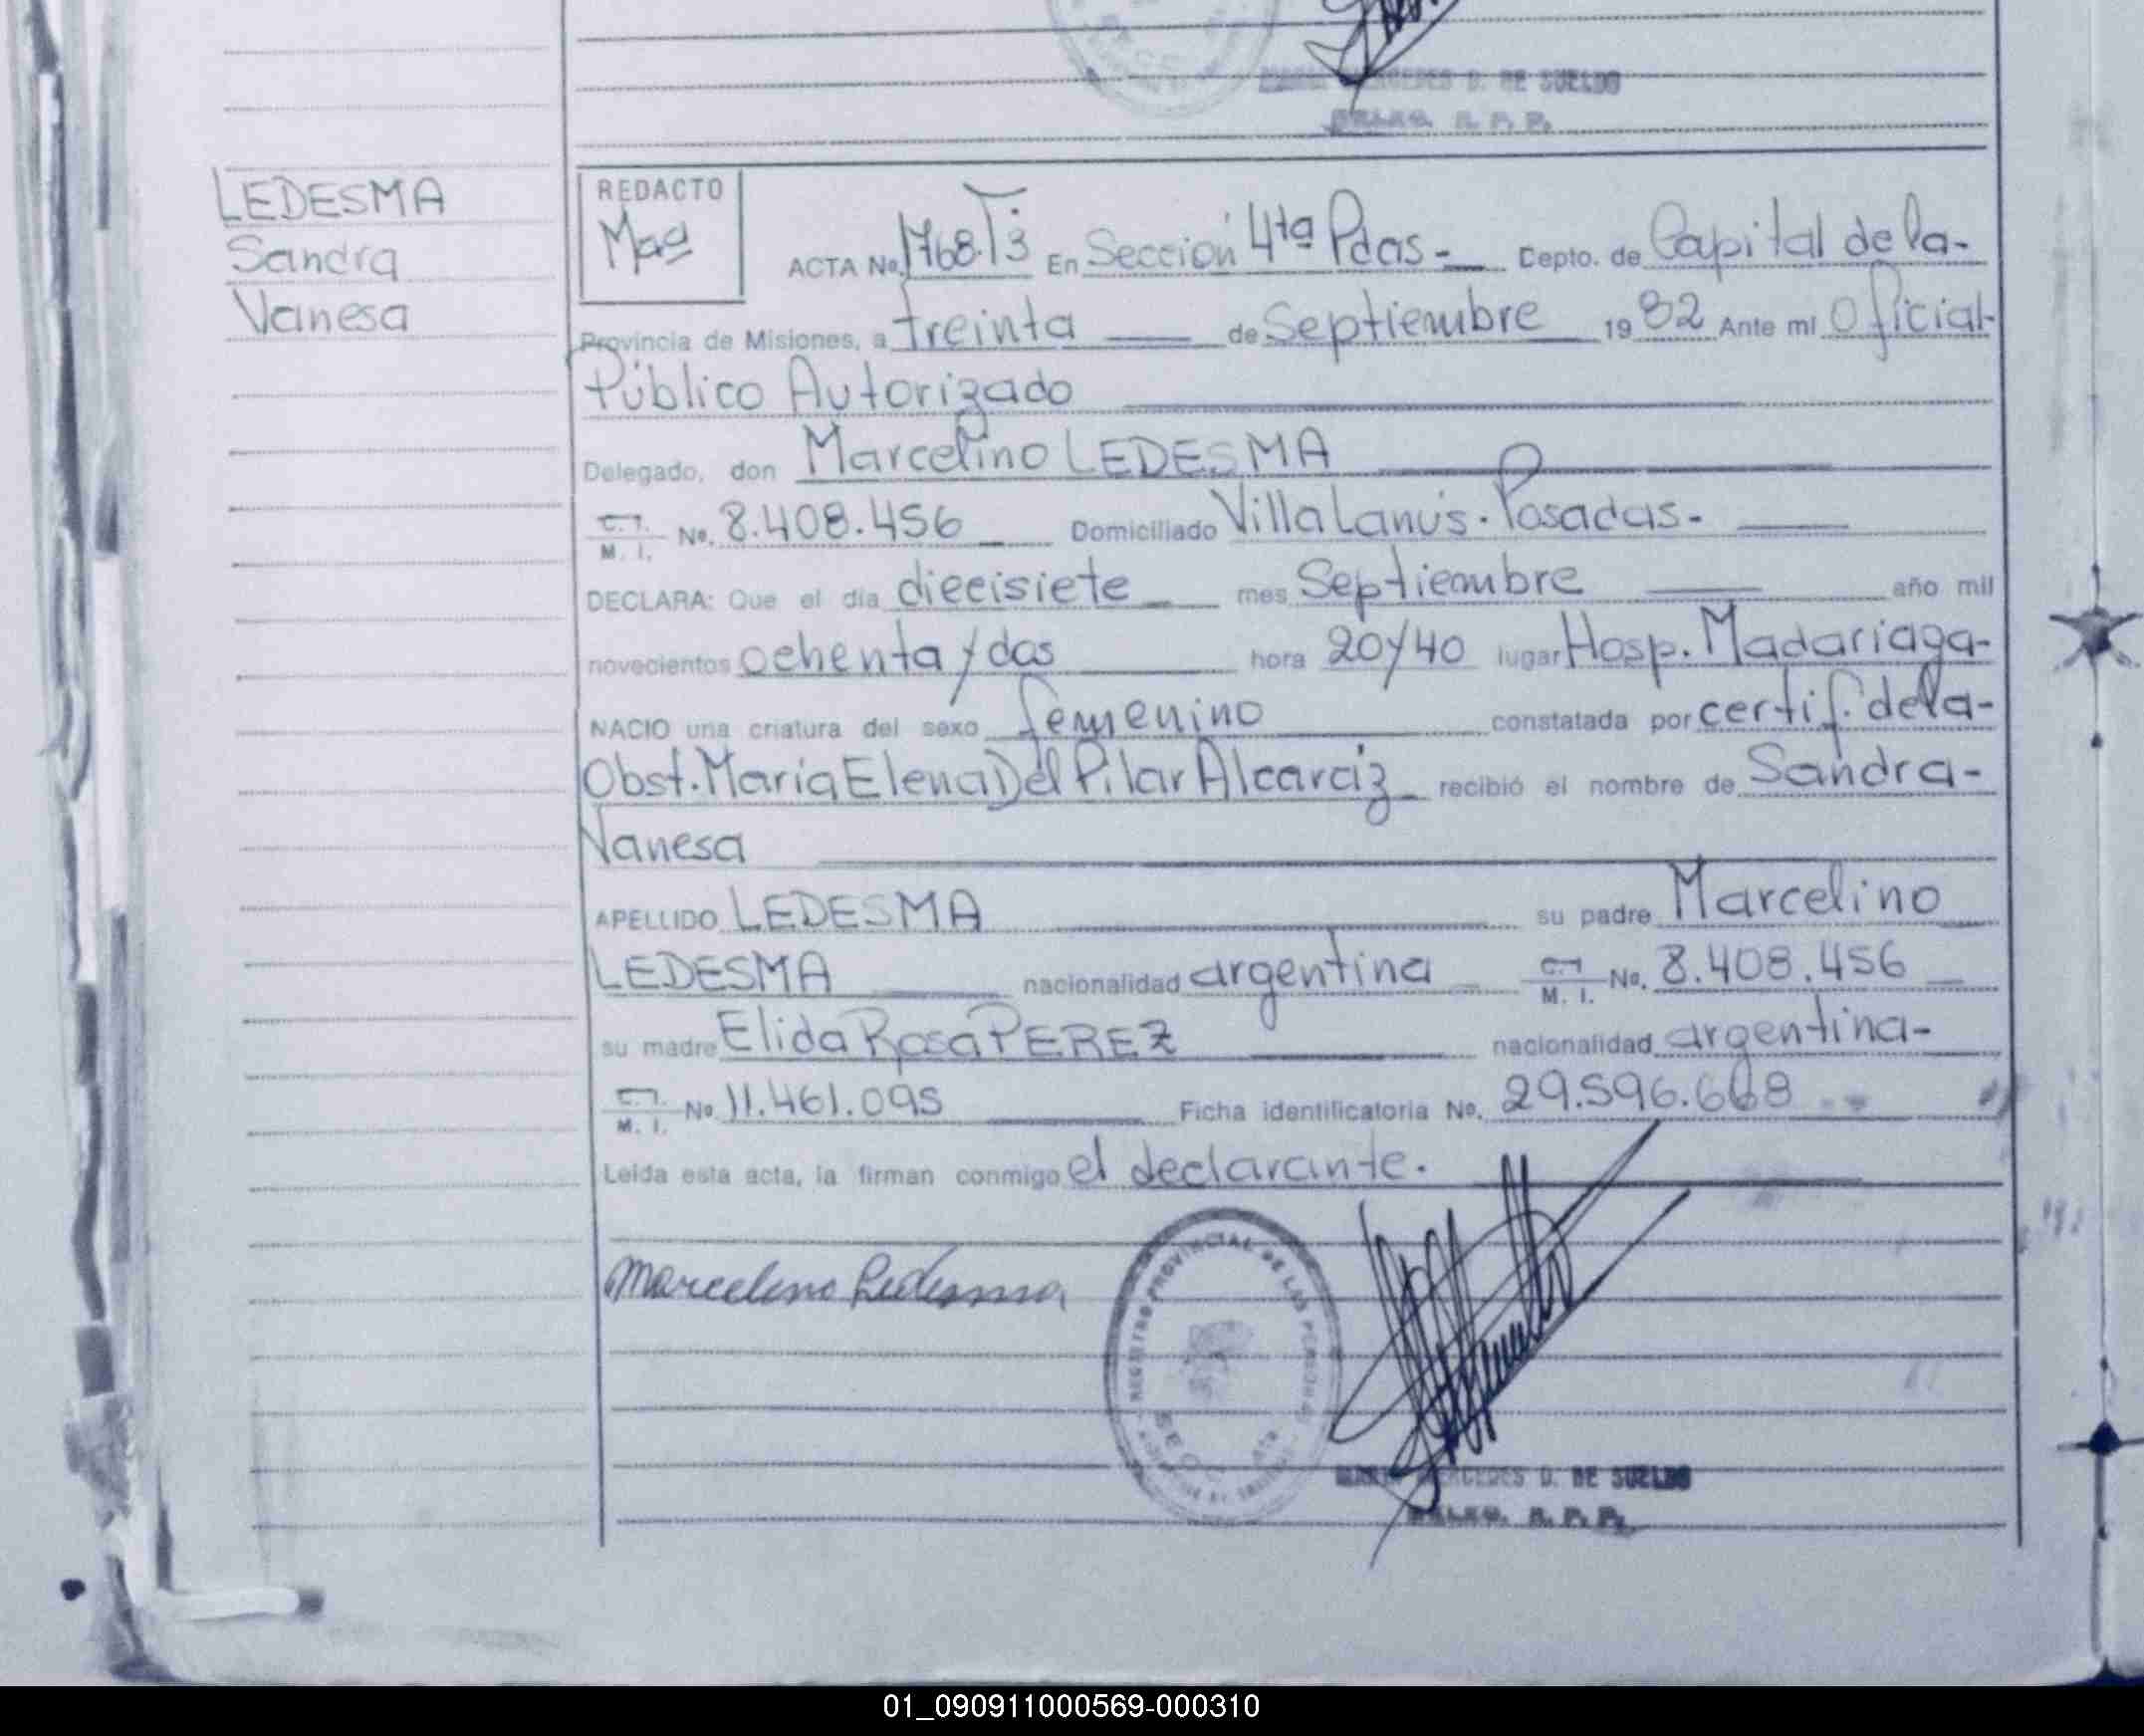 MERCEDES D. DE SUELDO
DELEG. R. P. P.
LEDESMA
Sandra
Vanesa
REDACTO
ACTA No. 1768. T3 En Sección 4ta Pdas- Depto. de Capital de la-
Provincia de Misiones, a treinta de Septiembre 1982 Ante mi Oficial-
Público Autorizado
Delegado, don Marcelino LEDESMA
C. I.
M. I. No. 8.408.456 Domiciliado Villa Lanús. Posadas.-
DECLARA: Que el día diecisiete mes Septiembre año mil
novecientos ochenta y dos hora 20 y 40 lugar Hosp. Madariaga-
NACIO una criatura del sexo femenino constatada por certif. de la-
Obst. María Elena Del Pilar Alcaráz recibió el nombre de Sandra-
Vanesa
APELLIDO LEDESMA su padre Marcelino
LEDESMA nacionalidad argentina C. I.
M. I. No. 8.408.456
su madre Elida Rosa PEREZ nacionalidad argentina-
C. I.
M. I. No 11.461.095 Ficha identificatoria No. 29.596.668
Leida esta acta, la firman conmigo el declarante.
Marcelino Ledesma
REGISTRO PROVINCIAL DE LAS PERSONAS
MERCEDES D. DE SUELDO
DELEG. R. P. P.
01_090911000569-000310